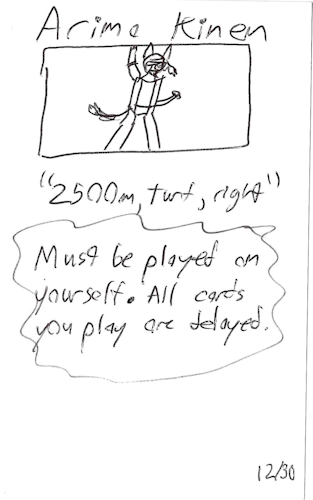 Arima Kinen
"2500m, turf, right"
Must be played on
yourself. All cards
you play are delayed.
12/30